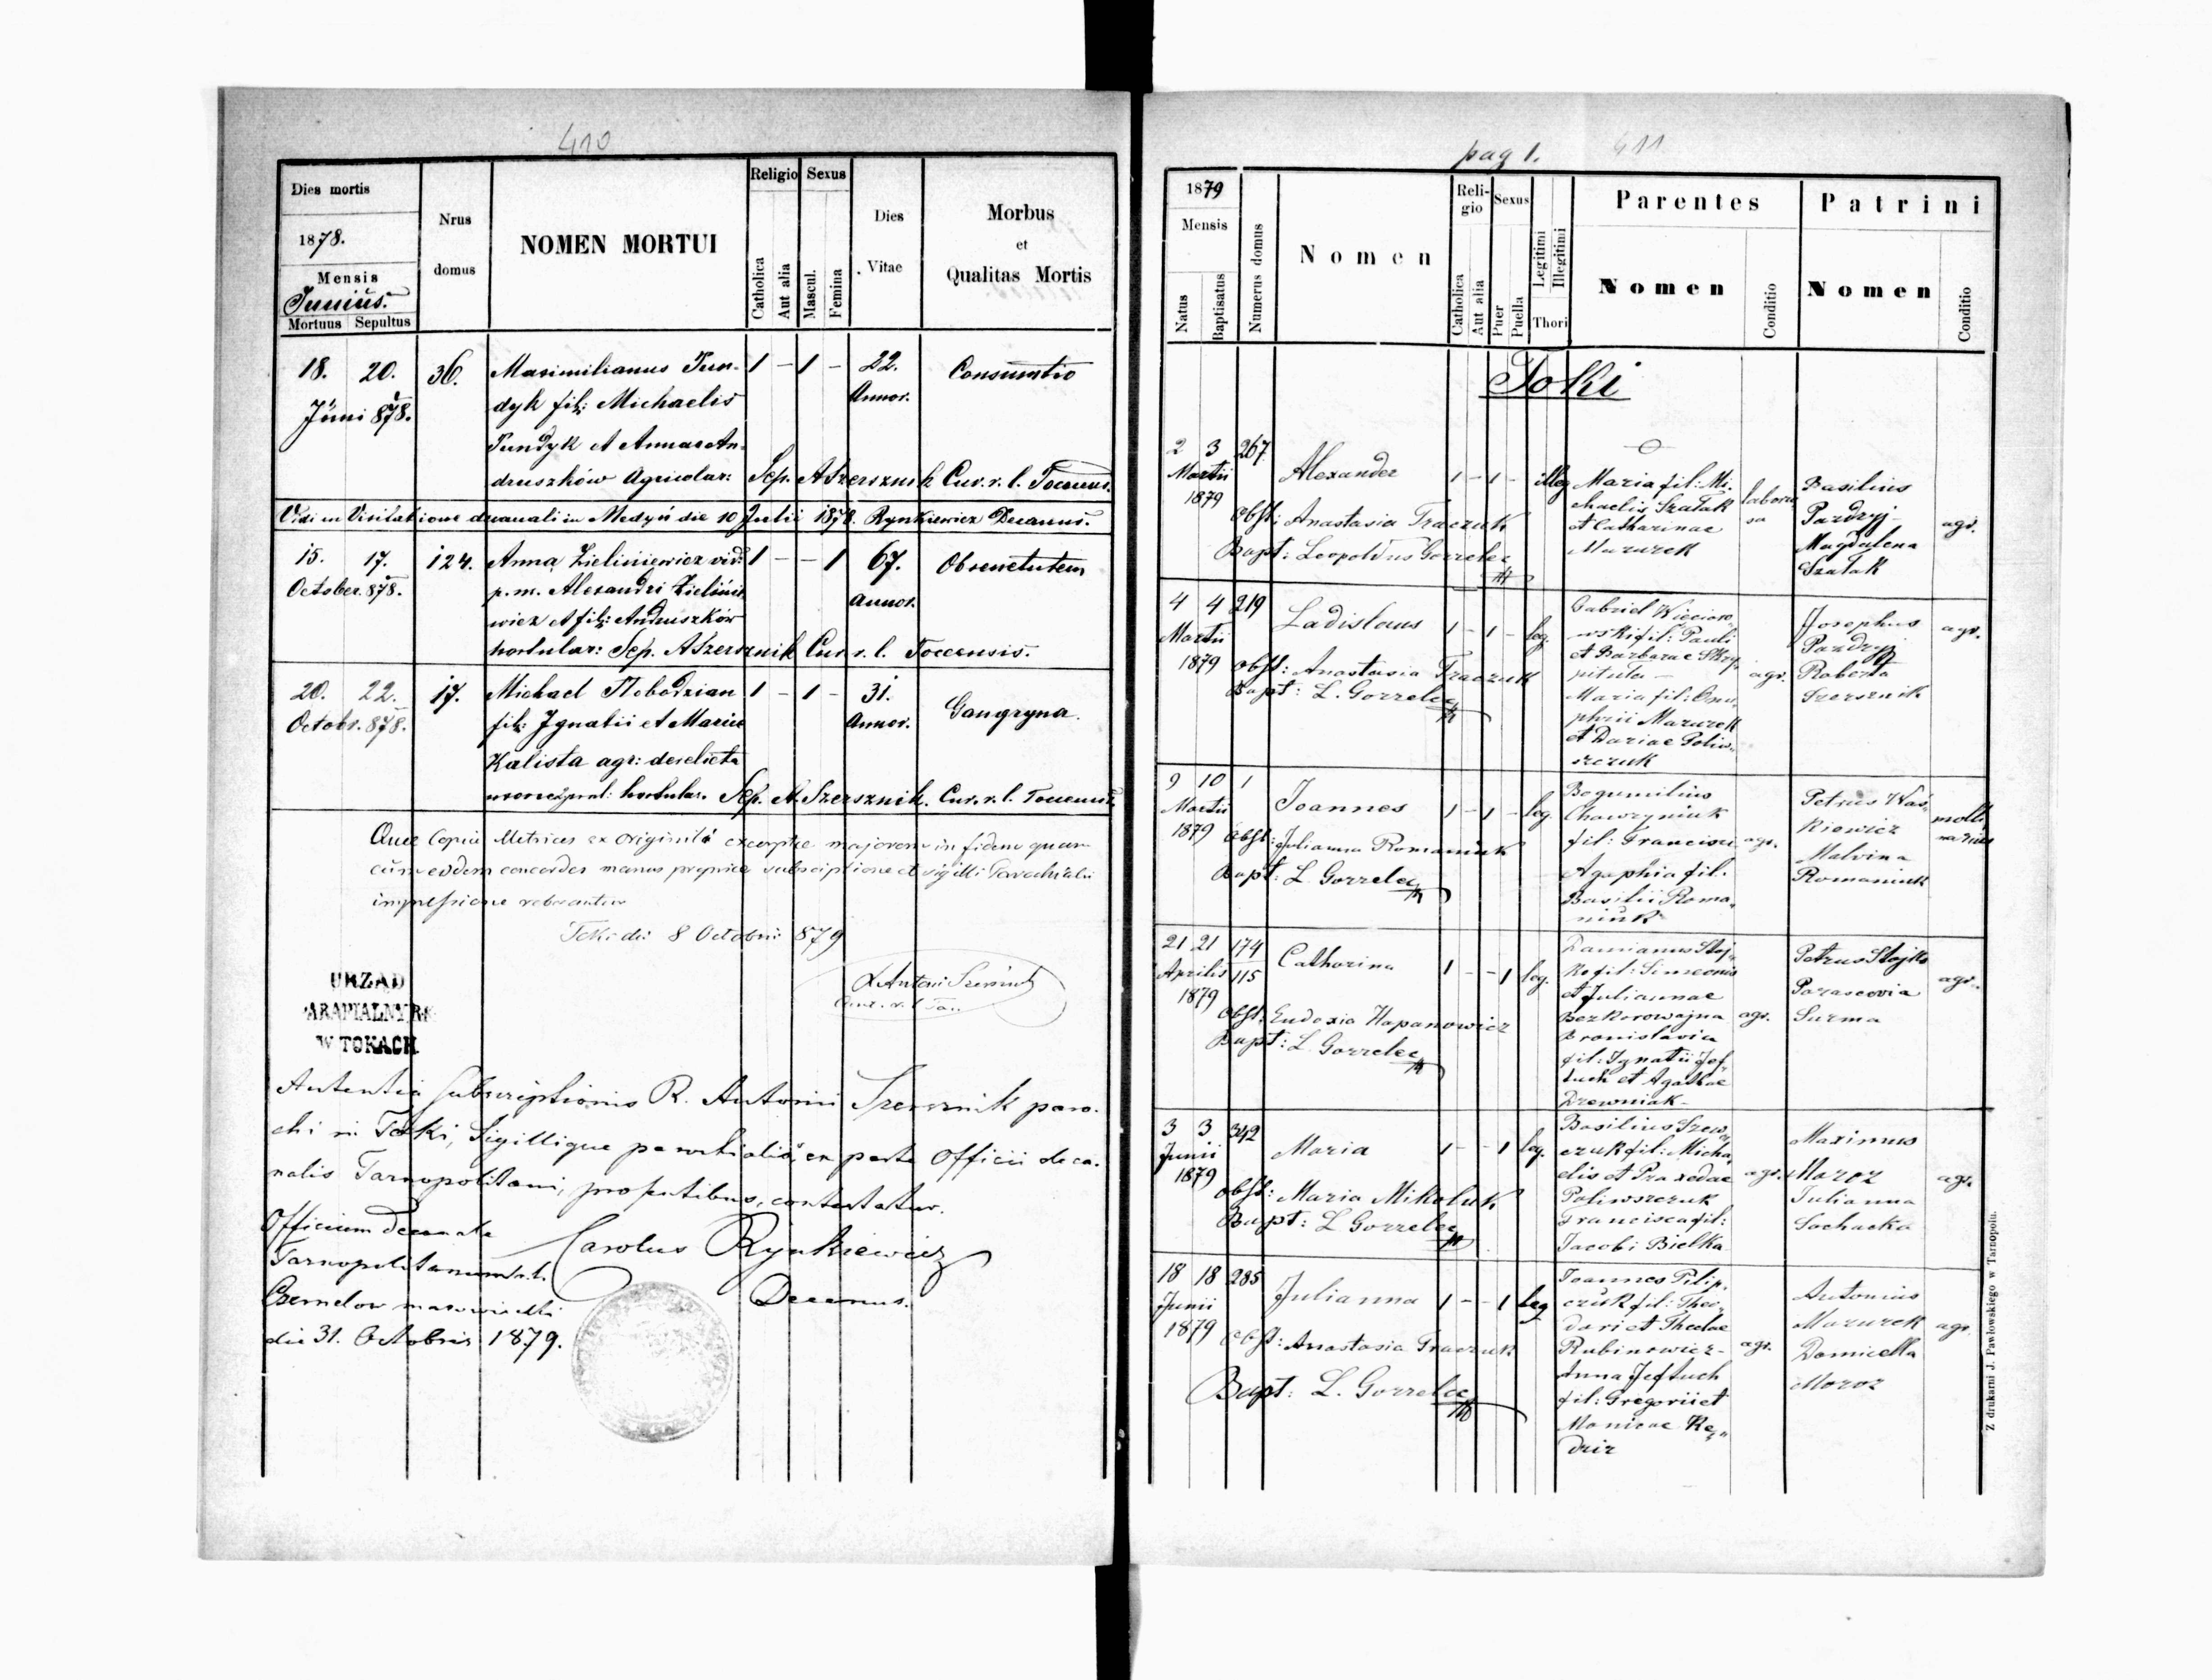 410
Dies mortis
1878.
Mensis
Junius.
Mortuus Sepultus
Nrus
domus
NOMEN MORTUI
Religio
Catholica
Aut alia
Sexus
Mascul.
Femina
Dies
Vitae
Morbus
et
Qualitas Mortis
18. 20. 36. Maximilianus Pun- 1 – 1 – 22. Consumtio
Juni 878. dyk fil: Michaelis Annor.
Pundyk et Annae An-
druszków Agricolar: Sep. A Szersznik Cur. r. l. Tocensis.
Vidi in Visitatione decanali in Medyń die 10 Julii 1878. Rynkiewicz Decanus.
15. 17. 124. Anna Zieliniewicz vid: 1 – – 1 67. Ob senectutem
October. 878. p. m. Alexandri Zielinie Annor.
wicz et fil: Andruszków
hortular: Sep. A Szersznik Cur. r. l. Tocensis.
20. 22. 17. Michael Słobodzian 1 – 1 – 31. Gangryna.
Octobr. 878. fil: Ignatii et Mariae Annor.
Kalista agr: derelicta
uxore hortular. Sep. A. Szersznik. Cur. r. l. Tocensis.
Quae Copia Metrices ex originali excerptae majorem in fidem quam
cum eodem concordes manus propriae subscriptione et sigilli Parochialis
impressione roborantur
Toki die 8 Octobris 879
X Antoni Szersznik
Cur. r. l. To..
URZĄD
PARAFIALNY R
W TOKACH
Autentia subscriptionis R. Antonii Szersznik paro-
chi in Toki, Sigillique parochialis, ex parte Officii deca-
nalis Tarnopolitani, praesentibus, contestatur.
Officium Decanale
Tarnopolitanum r. l.
Czernelow mazowiecki
die 31. Octobris 1879.
Carolus Rynkiewicz
Decanus.
pag 1. 411
1879
Mensis
Natus
Baptisatus
Numerus domus
Nomen
Religio
Catholica
Aut alia
Sexus
Puer
Puella
Legitimi
Illegitimi
Thori
Parentes
Nomen
Conditio
Patrini
Nomen
Conditio
Toki
2 3 267
Martii
1879
Alexander 1 – 1 – illeg
Obst: Anastasia Traczuk
Bapt: Leopoldus Gorzelec
Maria fil: Mi-
chaelis Szatak
et Catharinae
Mazurek
laborio
sa
Basilius
Pazdryj
Magdalena
Szatak
agr.
4 4 219
Martii
1879
Ladislaus 1 – 1 – leg.
Obst: Anastasia Traczuk
Bapt: L. Gorzelec
Gabriel Więcior-
wski fil: Pauli
et Barbarae Skry-
pituta –
Maria fil: Onu-
phrii Mazurek
et Dariae Poliw-
szczuk
agr.
Josephus
Pazdryj
Roberta
Szersznik
agr.
9 10 1
Martii
1879
Joannes 1 – 1 – leg.
Obst: Julianna Romaniuk
Bapt: L. Gorzelec
Bogumilius
Chawryniuk
fil: Francisci
Agaphia fil.
Basilii Roma-
niuk
agr.
Petrus Waś-
kiewicz
Malvina
Romaniuk
molli
narius
21 21 174
Aprilis 115
1879
Catharina 1 – – 1 leg.
Obst: Eudoxia Hapanowicz
Bapt: L. Gorzelec
Damianus Stoj-
ko fil: Simeonis
et Juliannae
Bezkorowajna
Bronislavia
fil: Ignatii Jef-
tuch et Agathae
Drewniak –
agr.
Petrus Stojko
Parascevia
Surma
agr.
3 3 342
Junii
1879
Maria 1 – – 1 leg.
Obst: Maria Mikoluk
Bapt: L. Gorzelec
Basilius Szew-
czuk fil: Micha-
elis et Praxedae
Poliwszczuk
Francisca fil:
Jacobi Bielka
agr.
Maximus
Moroz
Julianna
Sochacka
agr.
18 18 285
Junii
1879
Julianna 1 – – 1 leg
Obst: Anastasia Traczuk
Bapt: L. Gorzelec
Joannes Pilip-
czuk fil: Theo-
dori et Theclae
Rubinowicz –
Anna Jeftuch
fil: Gregorii et
Monicae Kę-
dzir
agr.
Antonius
Mazurek
Domicella
Moroz
agr.
Z drukarni J. Pawłowskiego w Tarnopolu.